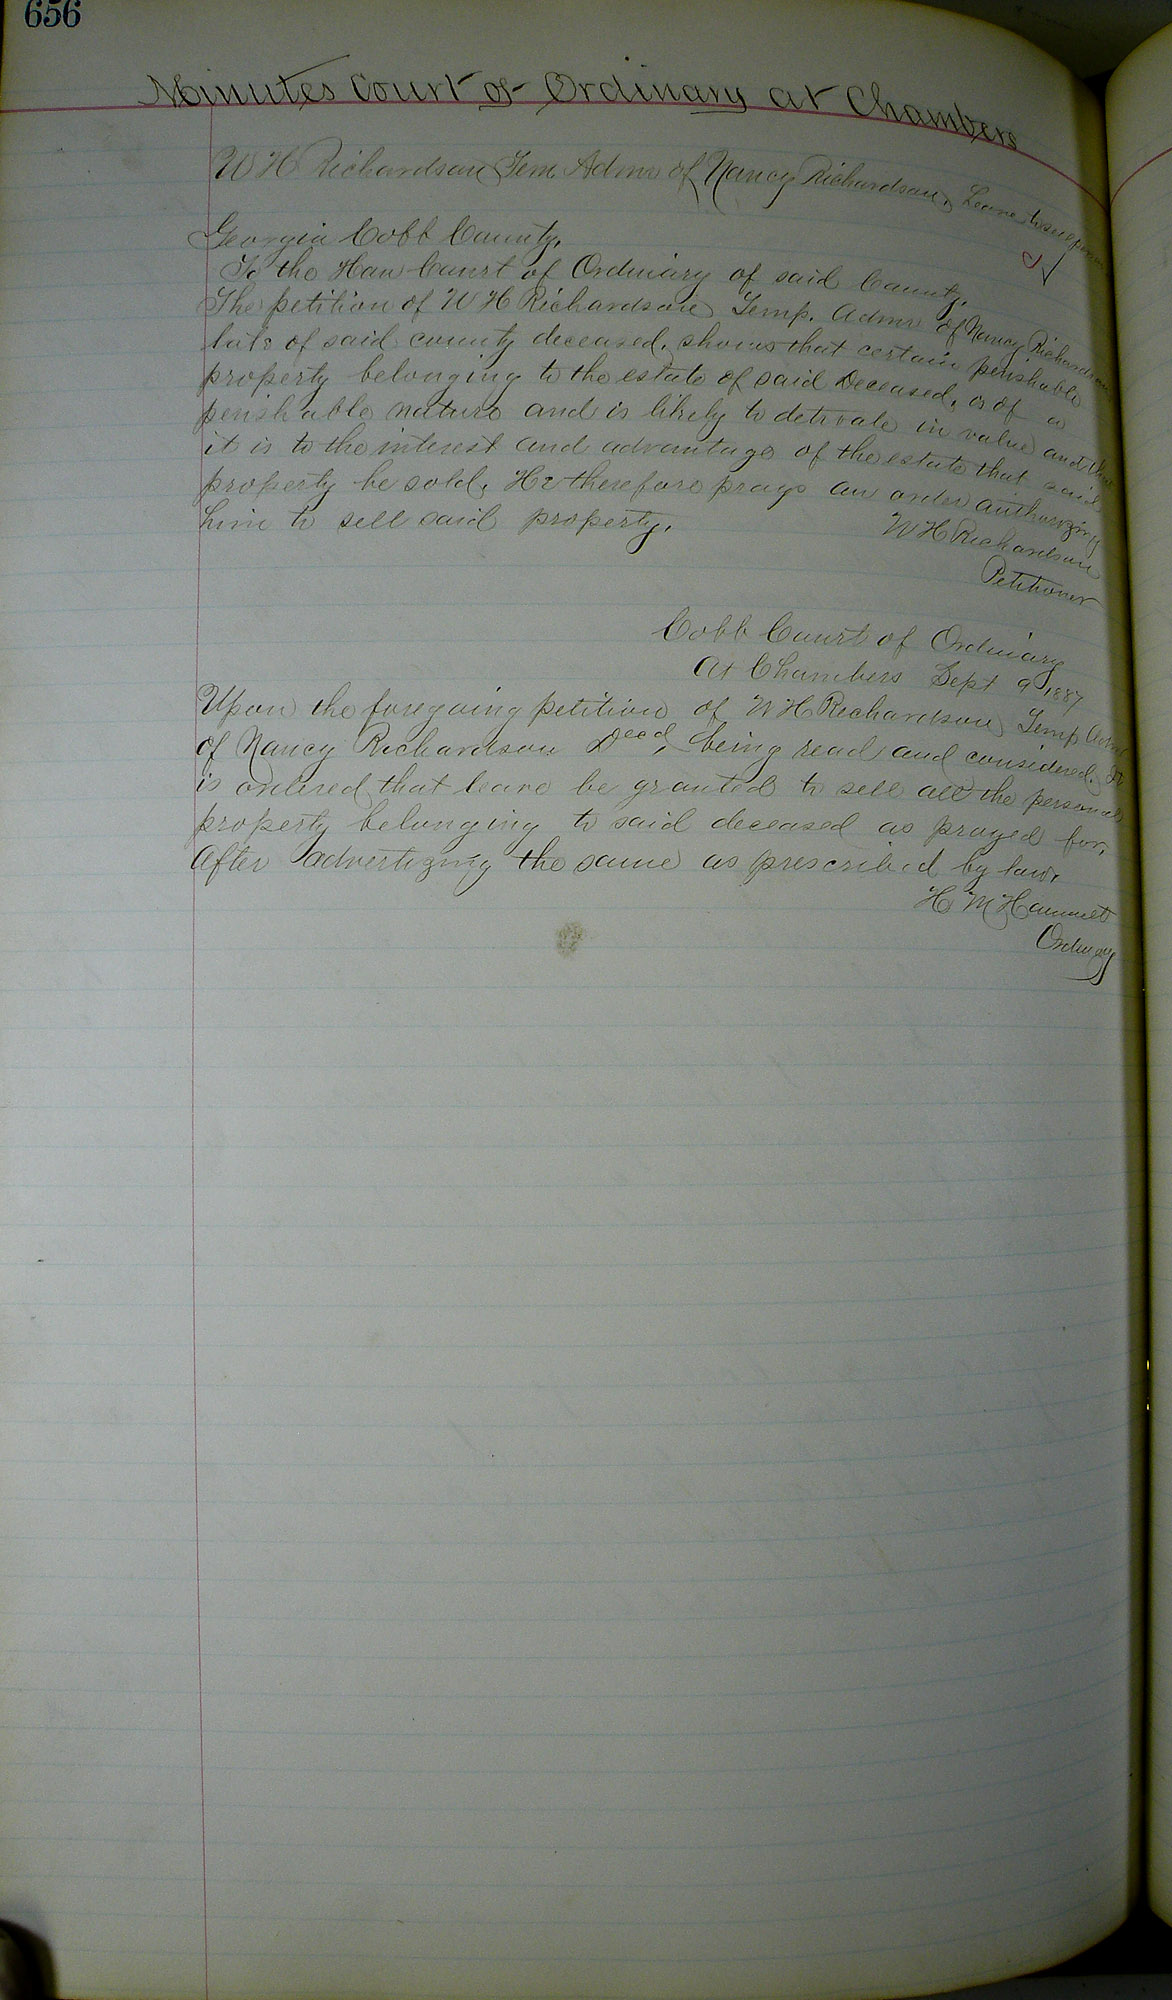 656
Minutes Court of Ordinary at Chambers
W H Richardson Tem Admr of Nancy Richardson, Leave to sell
Georgia Cobb County,
To the Hon Court of Ordinary of said County,
The petition of W H Richardson Temp. Admr of Nancy Richardson
late of said county deceased, shows that certain perishable
property belonging to the estate of said Deceased, is of a
perishable nature and is likely to in value and that
it is to the interest and advantage of the estate that said
property be sold, He therefore prays an order authorizing
him to sell said property,
W H Richardson
Petitioner
Cobb Court of Ordinary
At Chambers Sept 9 1887
Upon the foregoing petition of W H Richardson Temp Admr
of Nancy Richardson Decd, being read and considered, It
is ordered that leave be granted to sell all the personal
property belonging to said deceased as prayed for,
After advertizing the same as prescribed by law,
H M Hammett
Ordinary